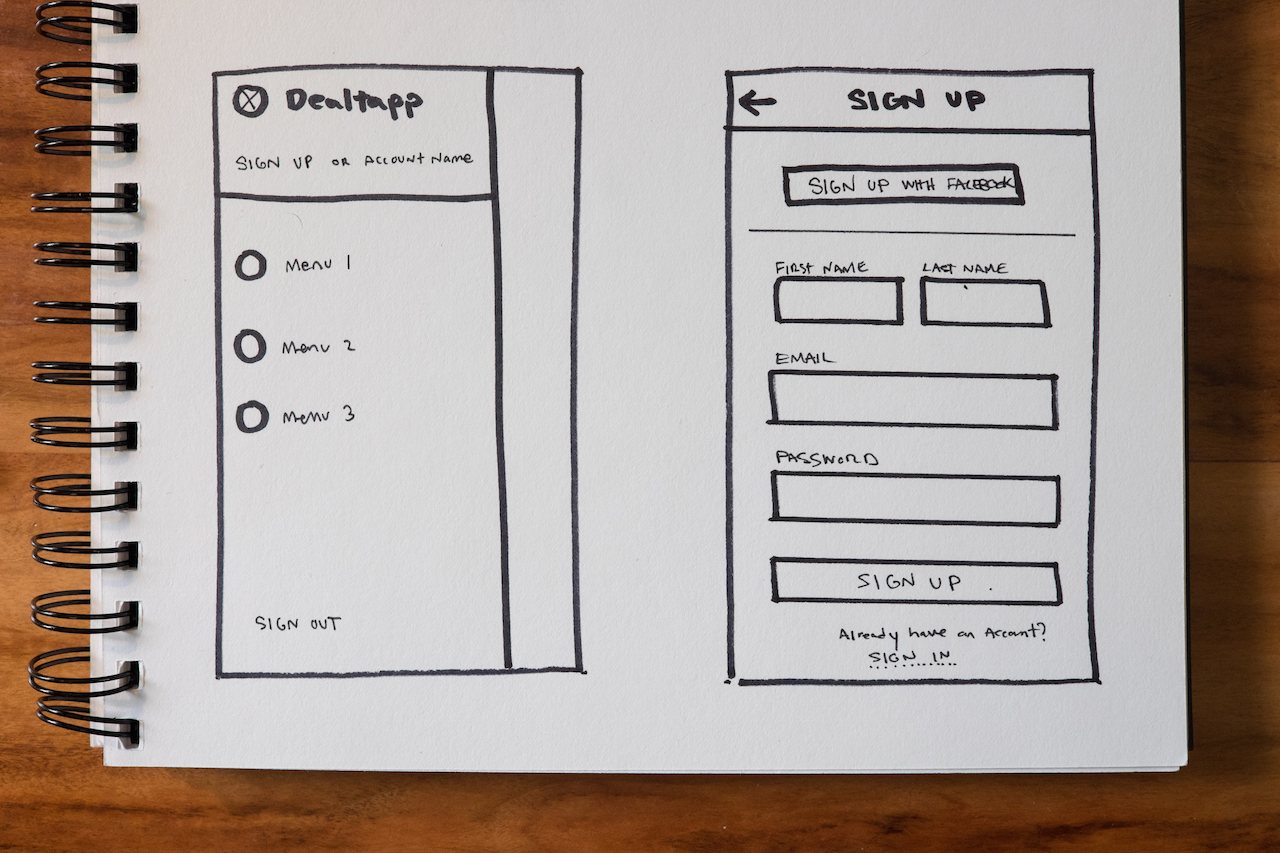 Dealtapp
SIGN UP OR ACCOUNT NAME
Menu 1
Menu 2
Menu 3
SIGN OUT
SIGN UP
SIGN UP WITH FACEBOOK
FIRST NAME LAST NAME
EMAIL
PASSWORD
SIGN UP
Already have an Account?
SIGN IN